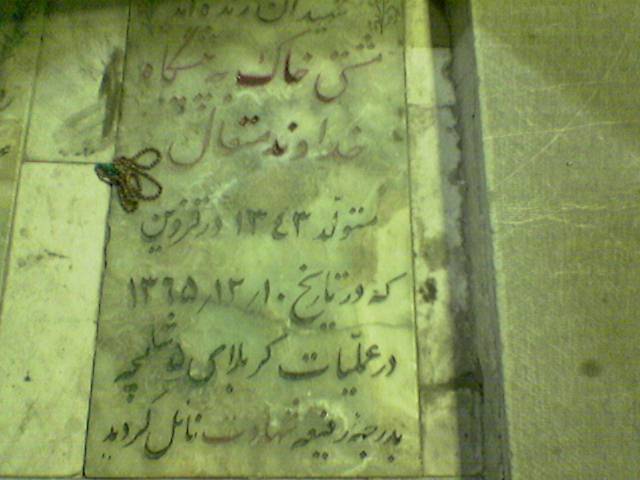 شهیدان زنده‌اند
مشتی خاک به پیشگاه
خداوند متعال
متولد ۱۳٤۳ در قزوین
که در تاریخ ۱۰ر۱۲ر۱۳٦۵
در عملیّات کربلای ۵ شلمچه
بدرجه رفیعه شهادت نائل گردید